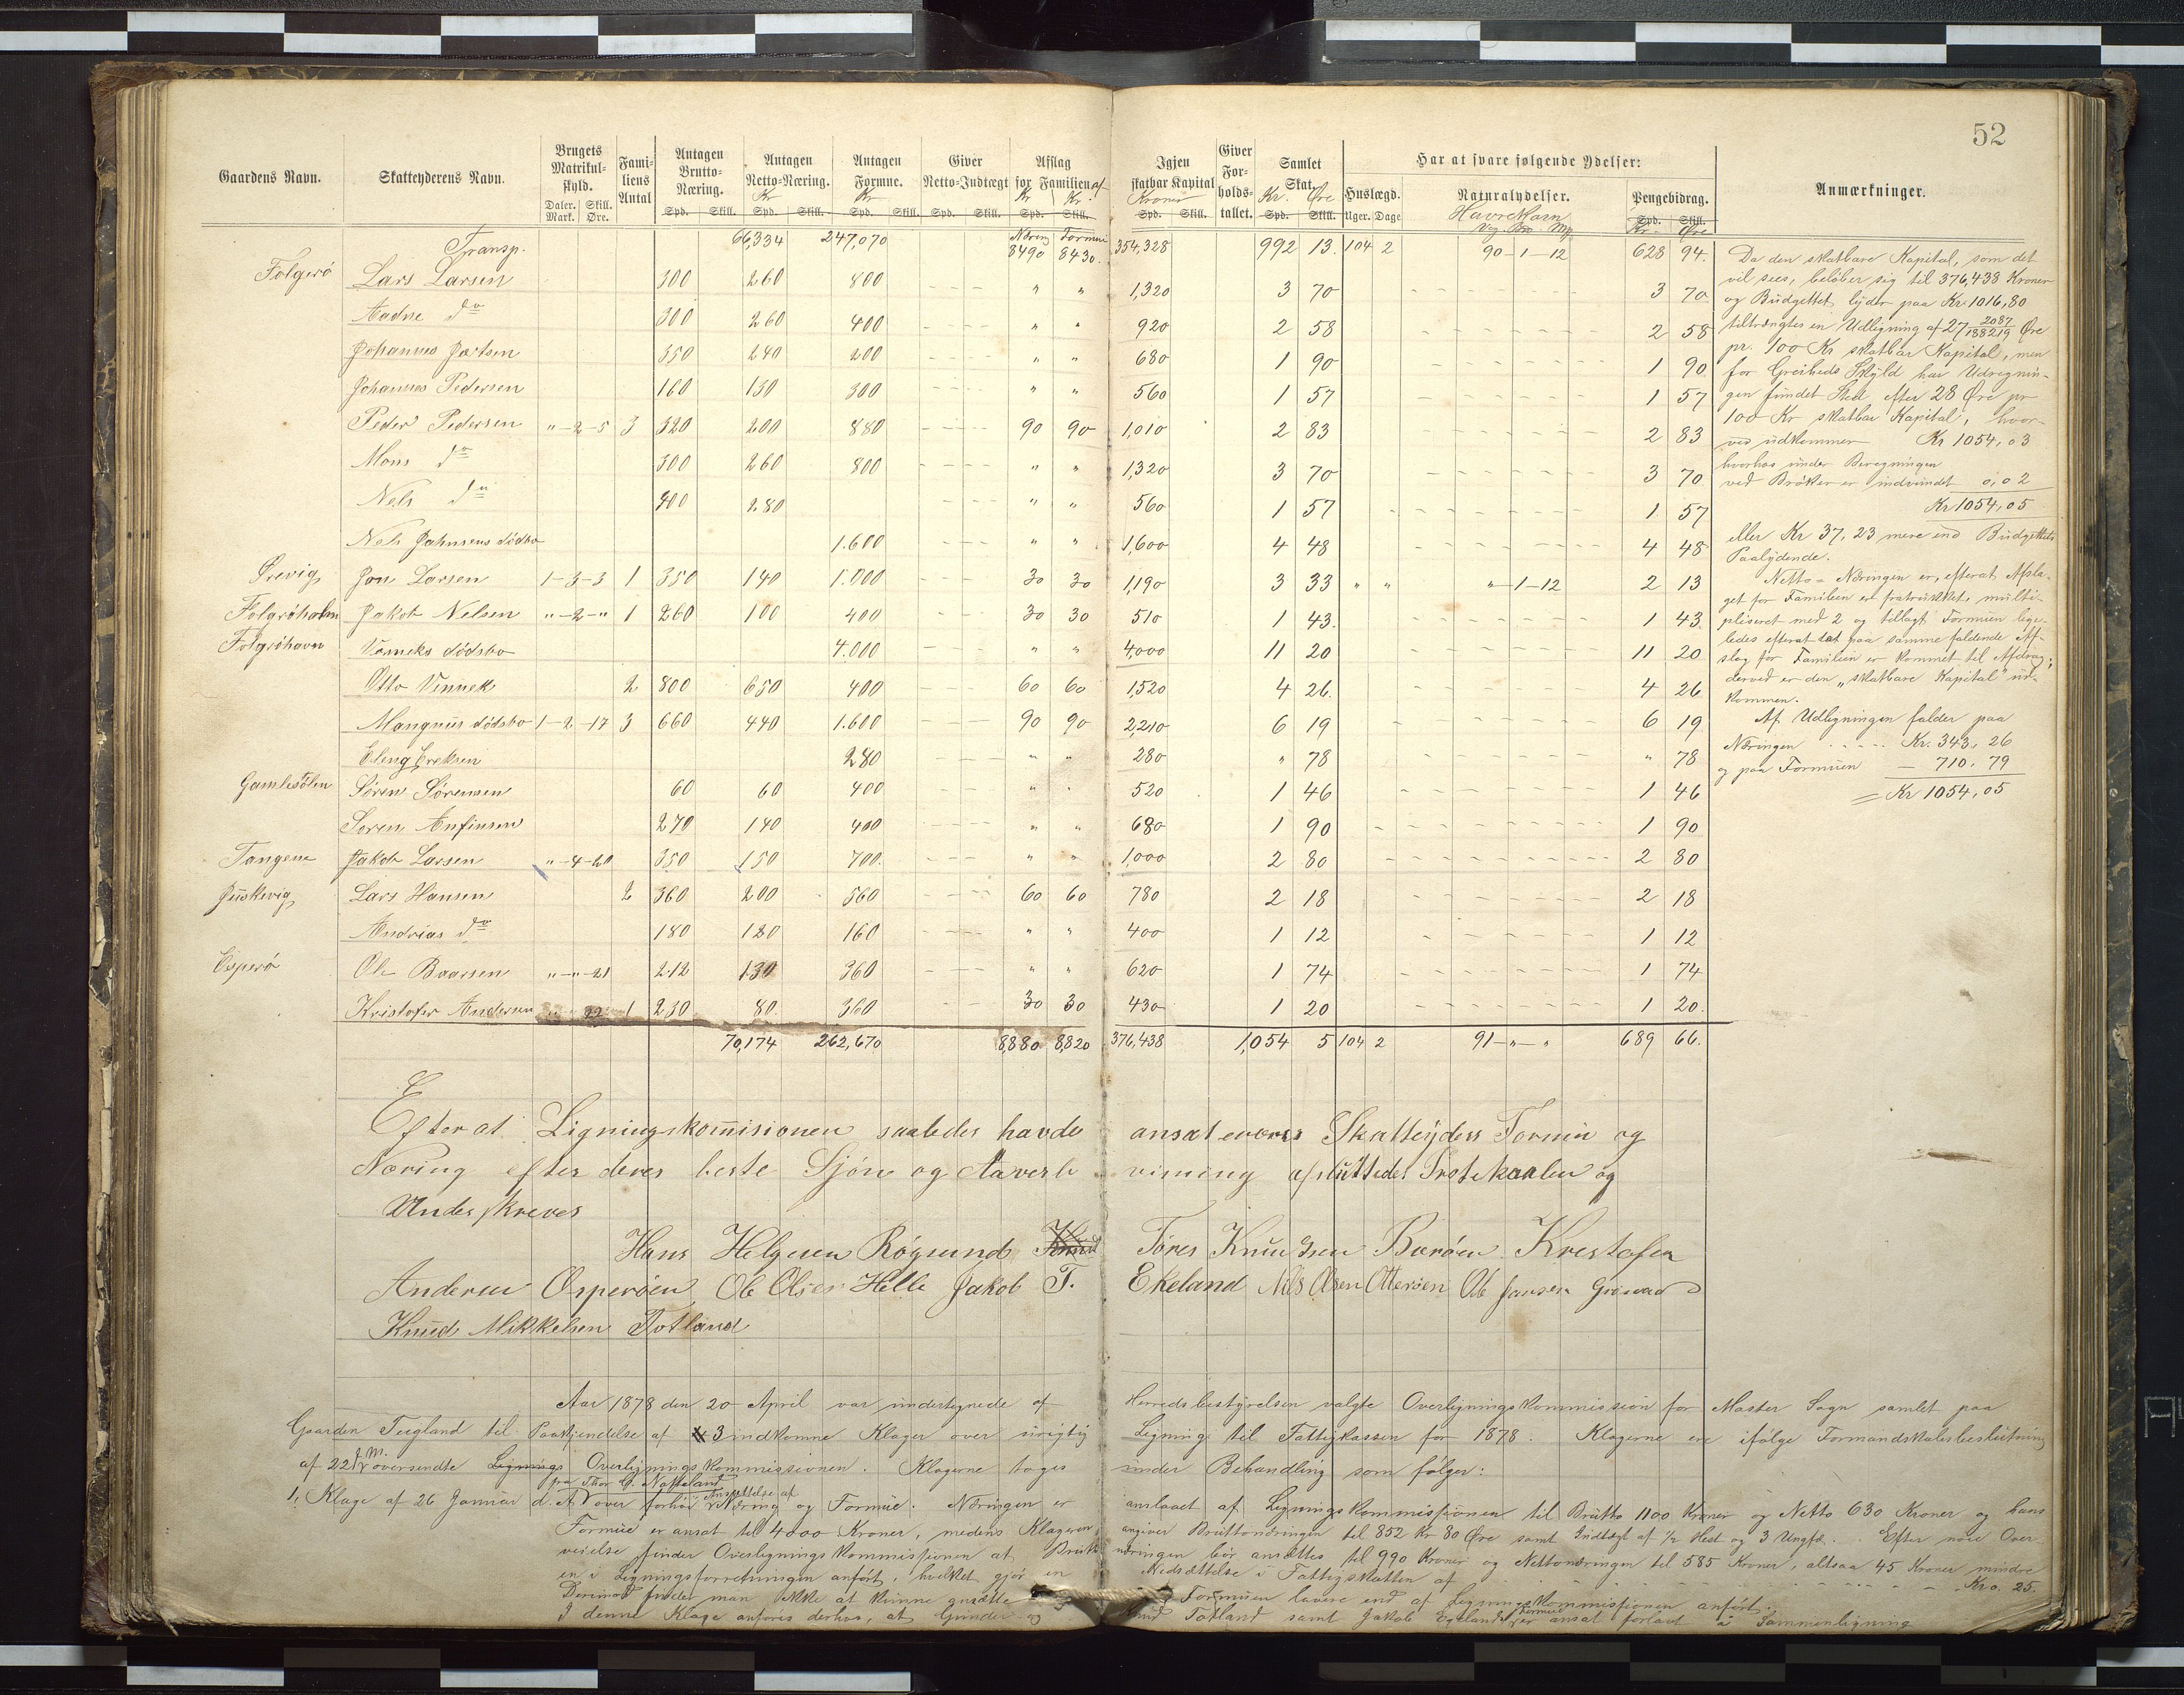 52
Gaardens Navn. Skatteyderens Navn. Brugets Matrikul-skyld. Daler. Mark. Skill. Øre. Fami-liens Antal Antagen Brutto-Næring. Spd. Skill. Antagen Netto-Næring. Kr Spd. Skill. Antagen Formue. Kr Spd. Skill. Giver Netto-Indtægt Spd. Skill. Afslag for Familien af Kr Kr. Skill. Igjen skatbar Kapital Kroner Spd. Skill. Giver For-holds-tallet. Samlet Skat. Kr. Øre Spd. Skill. Har at svare følgende Ydelser: Huslægd. Uger. Dage Naturalydelser. Havrekorn Pengebidrag. Spd. Skill. Kr. Øre Anmærkninger.
Transp. 66,334 247,070 Næring 8490 Formue 8430. 354,328 992 13. 104 2 90-1-12 628 94.
Folgerö Lars Larsen 300 260 800 - - - " " 1,320 3 70 3 70
Aadne do 300 260 400 " " 920 2 58 2 58
Johannes Jartsen 350 240 200 " " 680 1 90 1 90
Johannes Pedersen 160 130 300 " " 560 1 57 1 57
Peder Pedersen "-2-5 3 320 200 880 90 90 1,010 2 83 2 83
Mons do 300 260 800 " " 1,320 3 70 3 70
Nels do 400 280 " " 560 1 57 1 57
Nels Jahnsens dödsbo 1.600 " " 1,600 4 48 4 48
Ørevig Jon Larsen 1-3-3 1 350 140 1.000 30 30 1,190 3 33 " " "-1-12 2 13
Folgröholm Jakob Nelsen "-2-" 1 260 100 400 30 30 510 1 43. 1 43
Folgröhavn dödsbo 4.000 " " 4,000 11 20 11 20
Otto Vinnek 2 800 650 400 60 60 1,520 4 26. 4 26
Mangnus dödsbo 1-2-17 3 660 440 1.600 90 90 2,210 6 19 6 19
Eleng Ereksen 280 " " 280 " 78 " 78
Gamlestölen Sören Sörensen 60 60 400 " " 520 1 46 1 46
Soren Anfinsen 270 140 400 " " 680 1 90 1 90
Tangene Jakob Larsen "-4-20 350 150 700. " " 1,000 2 80 2 80
Juskevig Lars Hansen 2 360 200 560 60 60 780 2 18 2 18
Andrias do 180 120 160 " " 400 1 12 1 12
Osperö Ole Baarsen "-"-21 212 130 360 " " 620 1 74 1 74
Kristofer Andersen 22 1 230 80 360 30 30 430 1 20 1 20.
70,174 262,670 8,880 8,820 376,438 1,054 5 104 2 91-"-" 689 66.
Da den skatbare Kapital, som det
vil sees, beløber sig til 376,438 Kroner
og Budgettet lyder paa Kr. 1016,80
tiltrængtes en Udligning af 27 2087/188219 Øre
pr. 100 Kr skatbar Kapital, men
for Greiheds Skyld har Udregnin-
gen fundet Sted efter 28 Øre pr
100 Kr skatbar Kapital, hvor-
ved udkommer Kr 1054,03
hvorhos under Beregningen
ved Brøker er indvundet 0,02
Kr 1054,05
eller Kr 37,23 mere end Budgettets
Paalydende.
Netto-Næringen er, efterat Afsla-
get for Familien er fratrukket, multi-
pliseret med 2 og tillagt Formuen lige-
ledes efterat det paa samme faldende Af-
slag for Familien er kommet til Afdrag;
derved er den „skatbare Kapital" ud-
kommen.
Af Udligningen falder paa
Næringen - - - - - Kr. 343. 26
og paa Formuen — 710. 79
= Kr 1054,05
Efterat Ligningskommisionen saaledes havde ansat enværs Skatteyders Formue og
Næring efter deres beste Sjön og Aaverbevisning afsluttedes Protokaalen og
Underskreves
Hans Helgesen Rögsund Töres Knudsen Buröen. Krestofer
Andersen Osperöen Ole Olsen Helle Jakob T. Ekeland Nils Olsen Otteröen Ole Jansen
Knud Mikkelsen Totland
Aar 1878 den 20 April var undertegnede af Herredsbestyrelsen valgte Overligningskommission for Master Sogn samlet paa
Gaarden Tugland til Paakjendelse af 3 indkomne Klager over urigtig Ligning til Fattigkassen for 1878. Klagerne ere ifølge Formandskabsbeslutning
af 22 f.m. oversendte Lignings Overligningskommissionen. Klagerne toges under Behandling som følger:
1, Klage af 26 Januar d. A. fra Thor O. Nappeland over forhøi Ansættelse af Næring og Formue. Næringen er anslaaet af Ligningskommissionen til Brutto 1100 Kroner og Netto 630 Kroner og hans
Formue er ansat til 4000 Kroner, medens Klageren angiver Bruttonæringen til 852 Kr 80 Øre samt Indtægt af 1/2 Hest og 3 Ungfæ. Efter nøie Over
veielse finder Overligningskommissionen at Bruttonæringen bør ansættes til 990 Kroner og Nettonæringen til 585 Kroner, altsaa 45 Kroner mindre
en i Ligningsforretningen anført, hvilket gjør en Nedsættelse i Fattigskatten af - - - - Kr 0. 25.
Derimod finder man ikke at kunne ansætte Formuen lavere end af Ligningskommissionen anført.
I denne Klage anføres derhos, at Gunder og Knud Totland samt Jakob Egelands Formue er ansat forlavt i Sammenligning